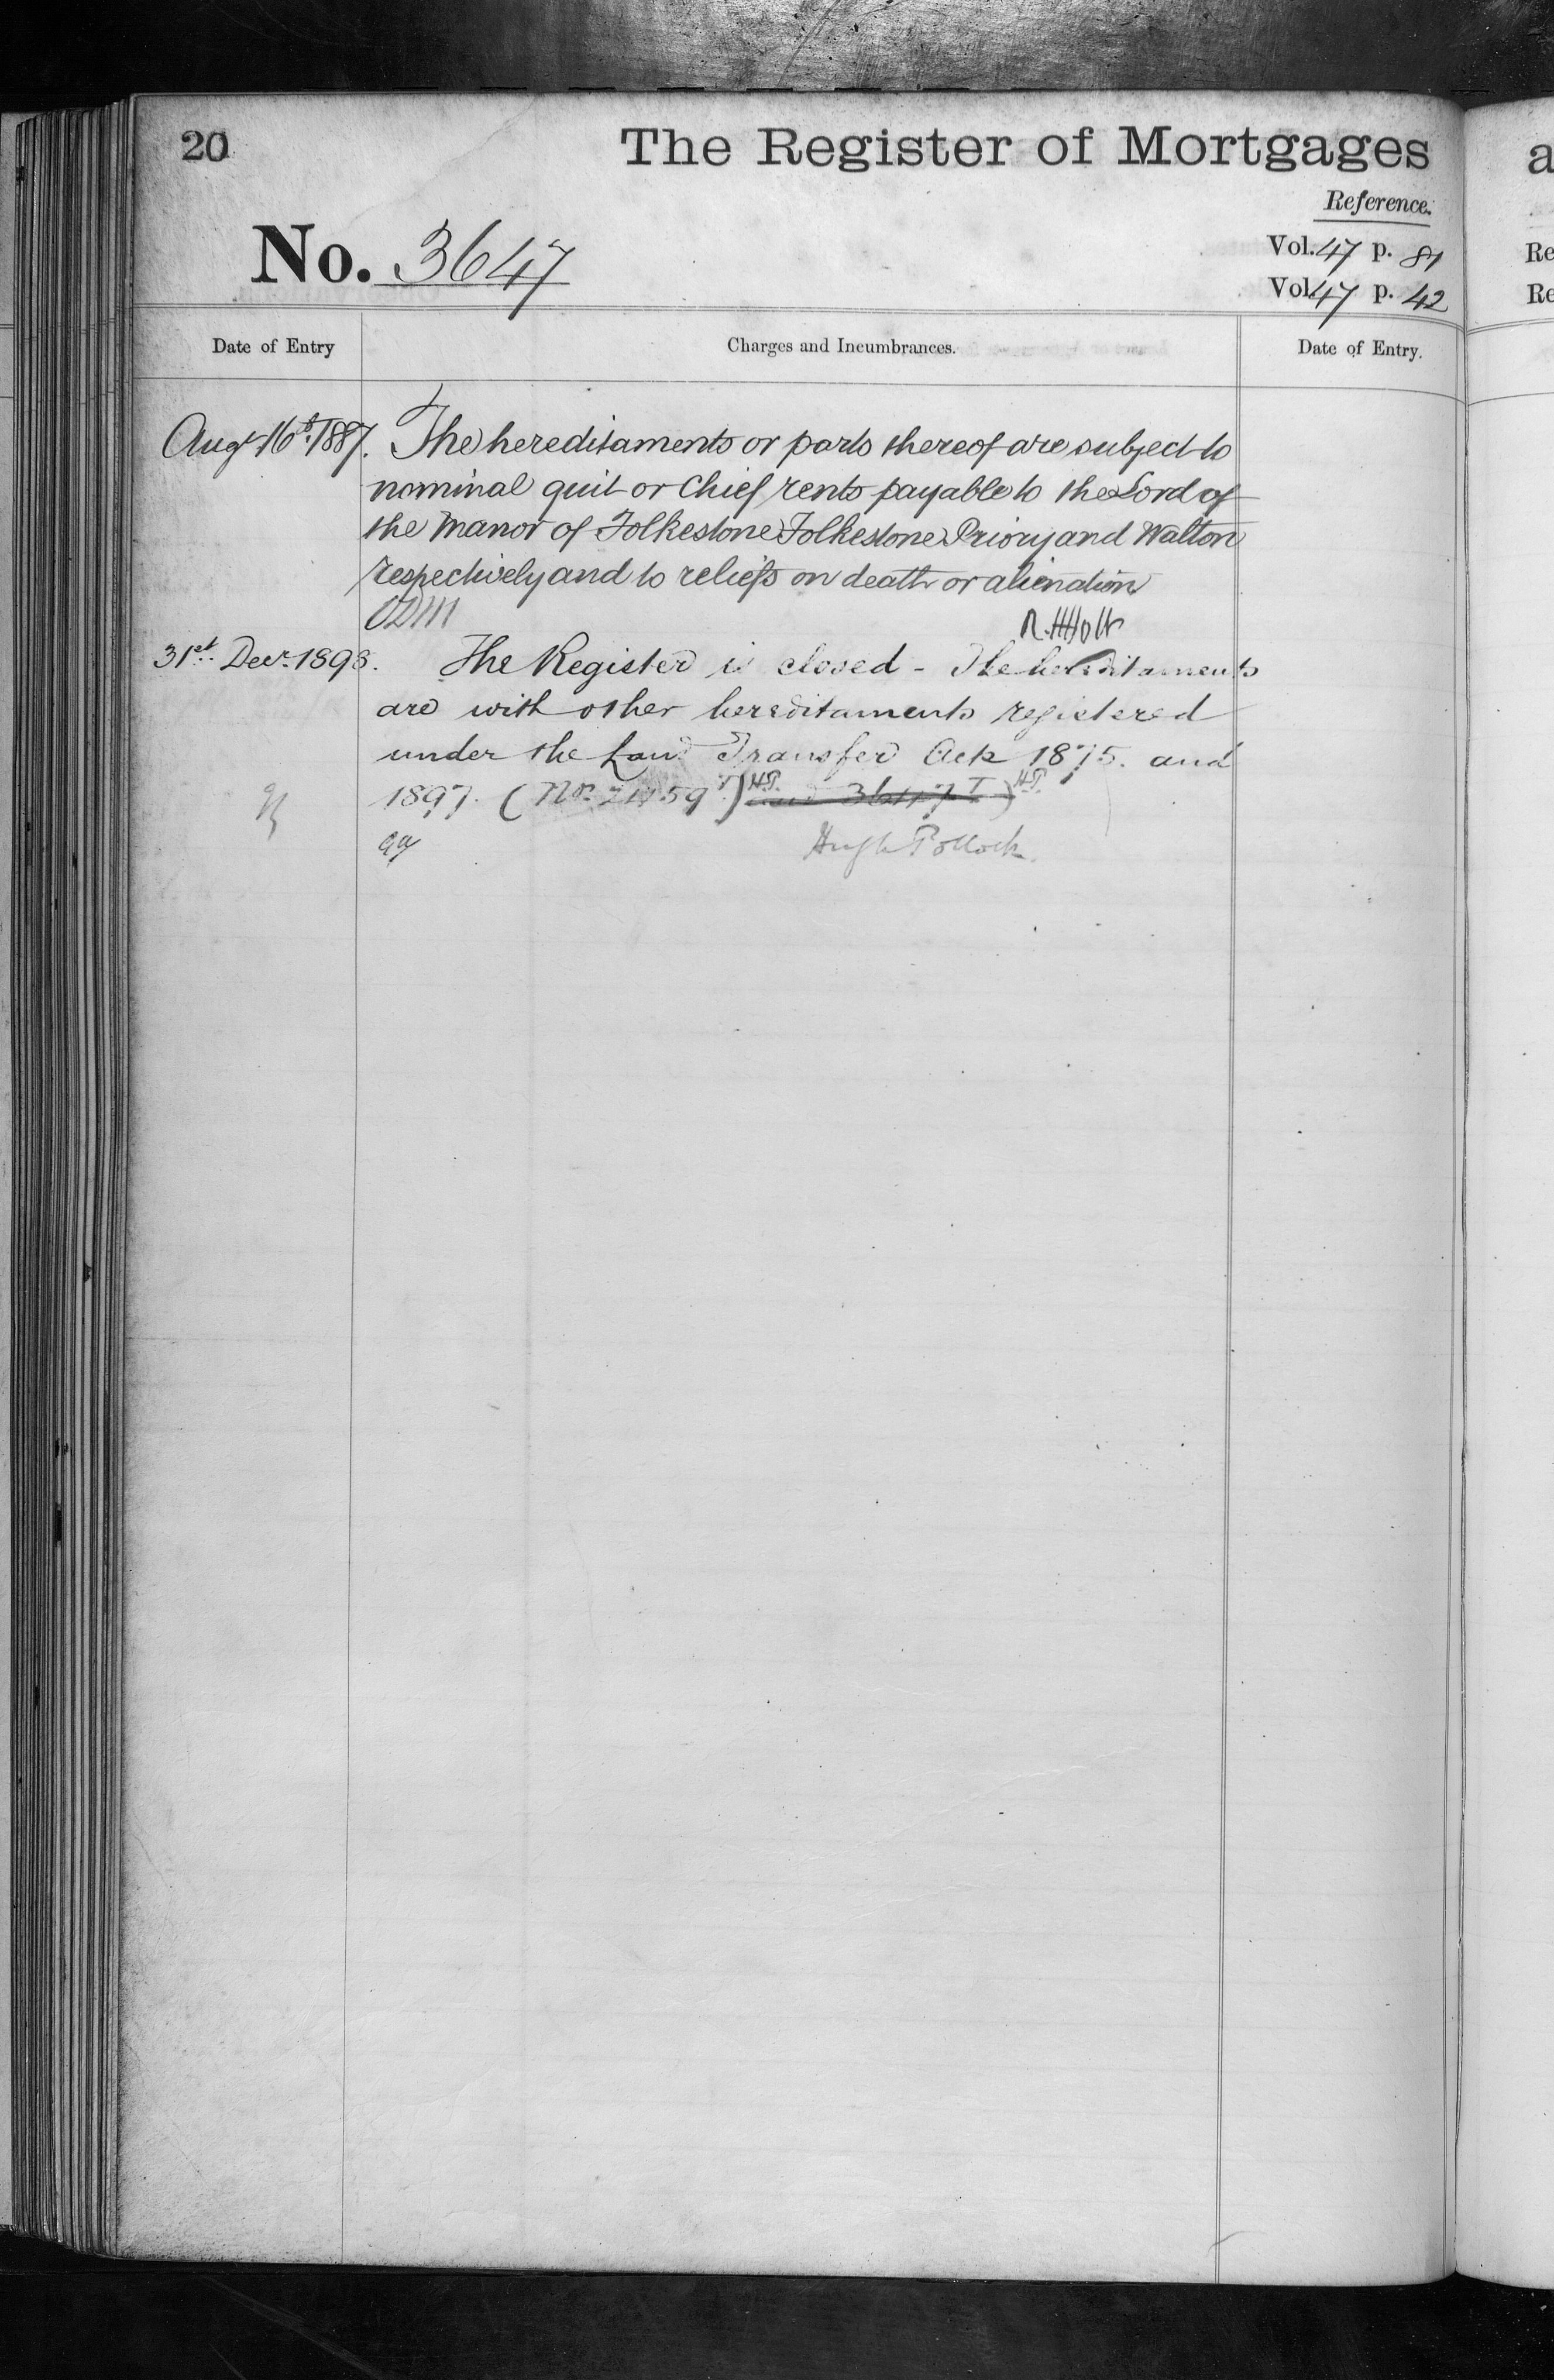 20
The Register of Mortgages
a
Reference.
No. 3647
Vol. 47 p. 81
Re
Vol. 47 p. 42
Re
Date of Entry
Charges and Incumbrances.
Date of Entry.
Augt 16th 1887. The hereditaments or parts thereof are subject to
nominal quit or Chief rents payable to the Lord of
the Manor of Folkestone Folkestone Priory and Walton
respectively and to reliefs on death or alienation
R. H. Holt
31st Decr. 1898. The Register is closed - The hereditaments
are with other hereditaments registered
under the Land Transfer Acts 1875. and
1897. (No. ) H.P. and 3647 I) H.P.
Hugh Pollock